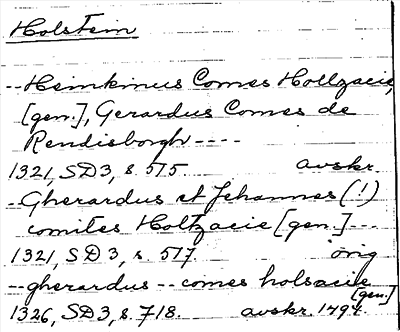 Holstein
-- Heinkinus Comes Holtzacie,
[gen.], Gerardus Comes de
Rendisborgh ----
1321, SD 3, s. 575. avskr.
- Gherardus et Jehannes (!)
comites Holtzacie [gen.] ---
1321, SD 3, s. 517. orig
-- gherardus -- comes holsacie [gen.]
1326, SD 3, s. 718. avskr. 1494.